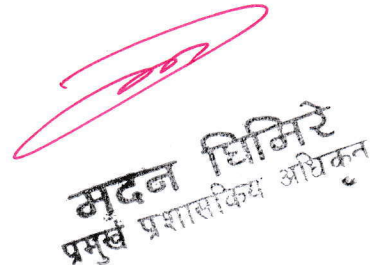 मदन घिमिरे
प्रमुख प्रशासकिय अधिकृत